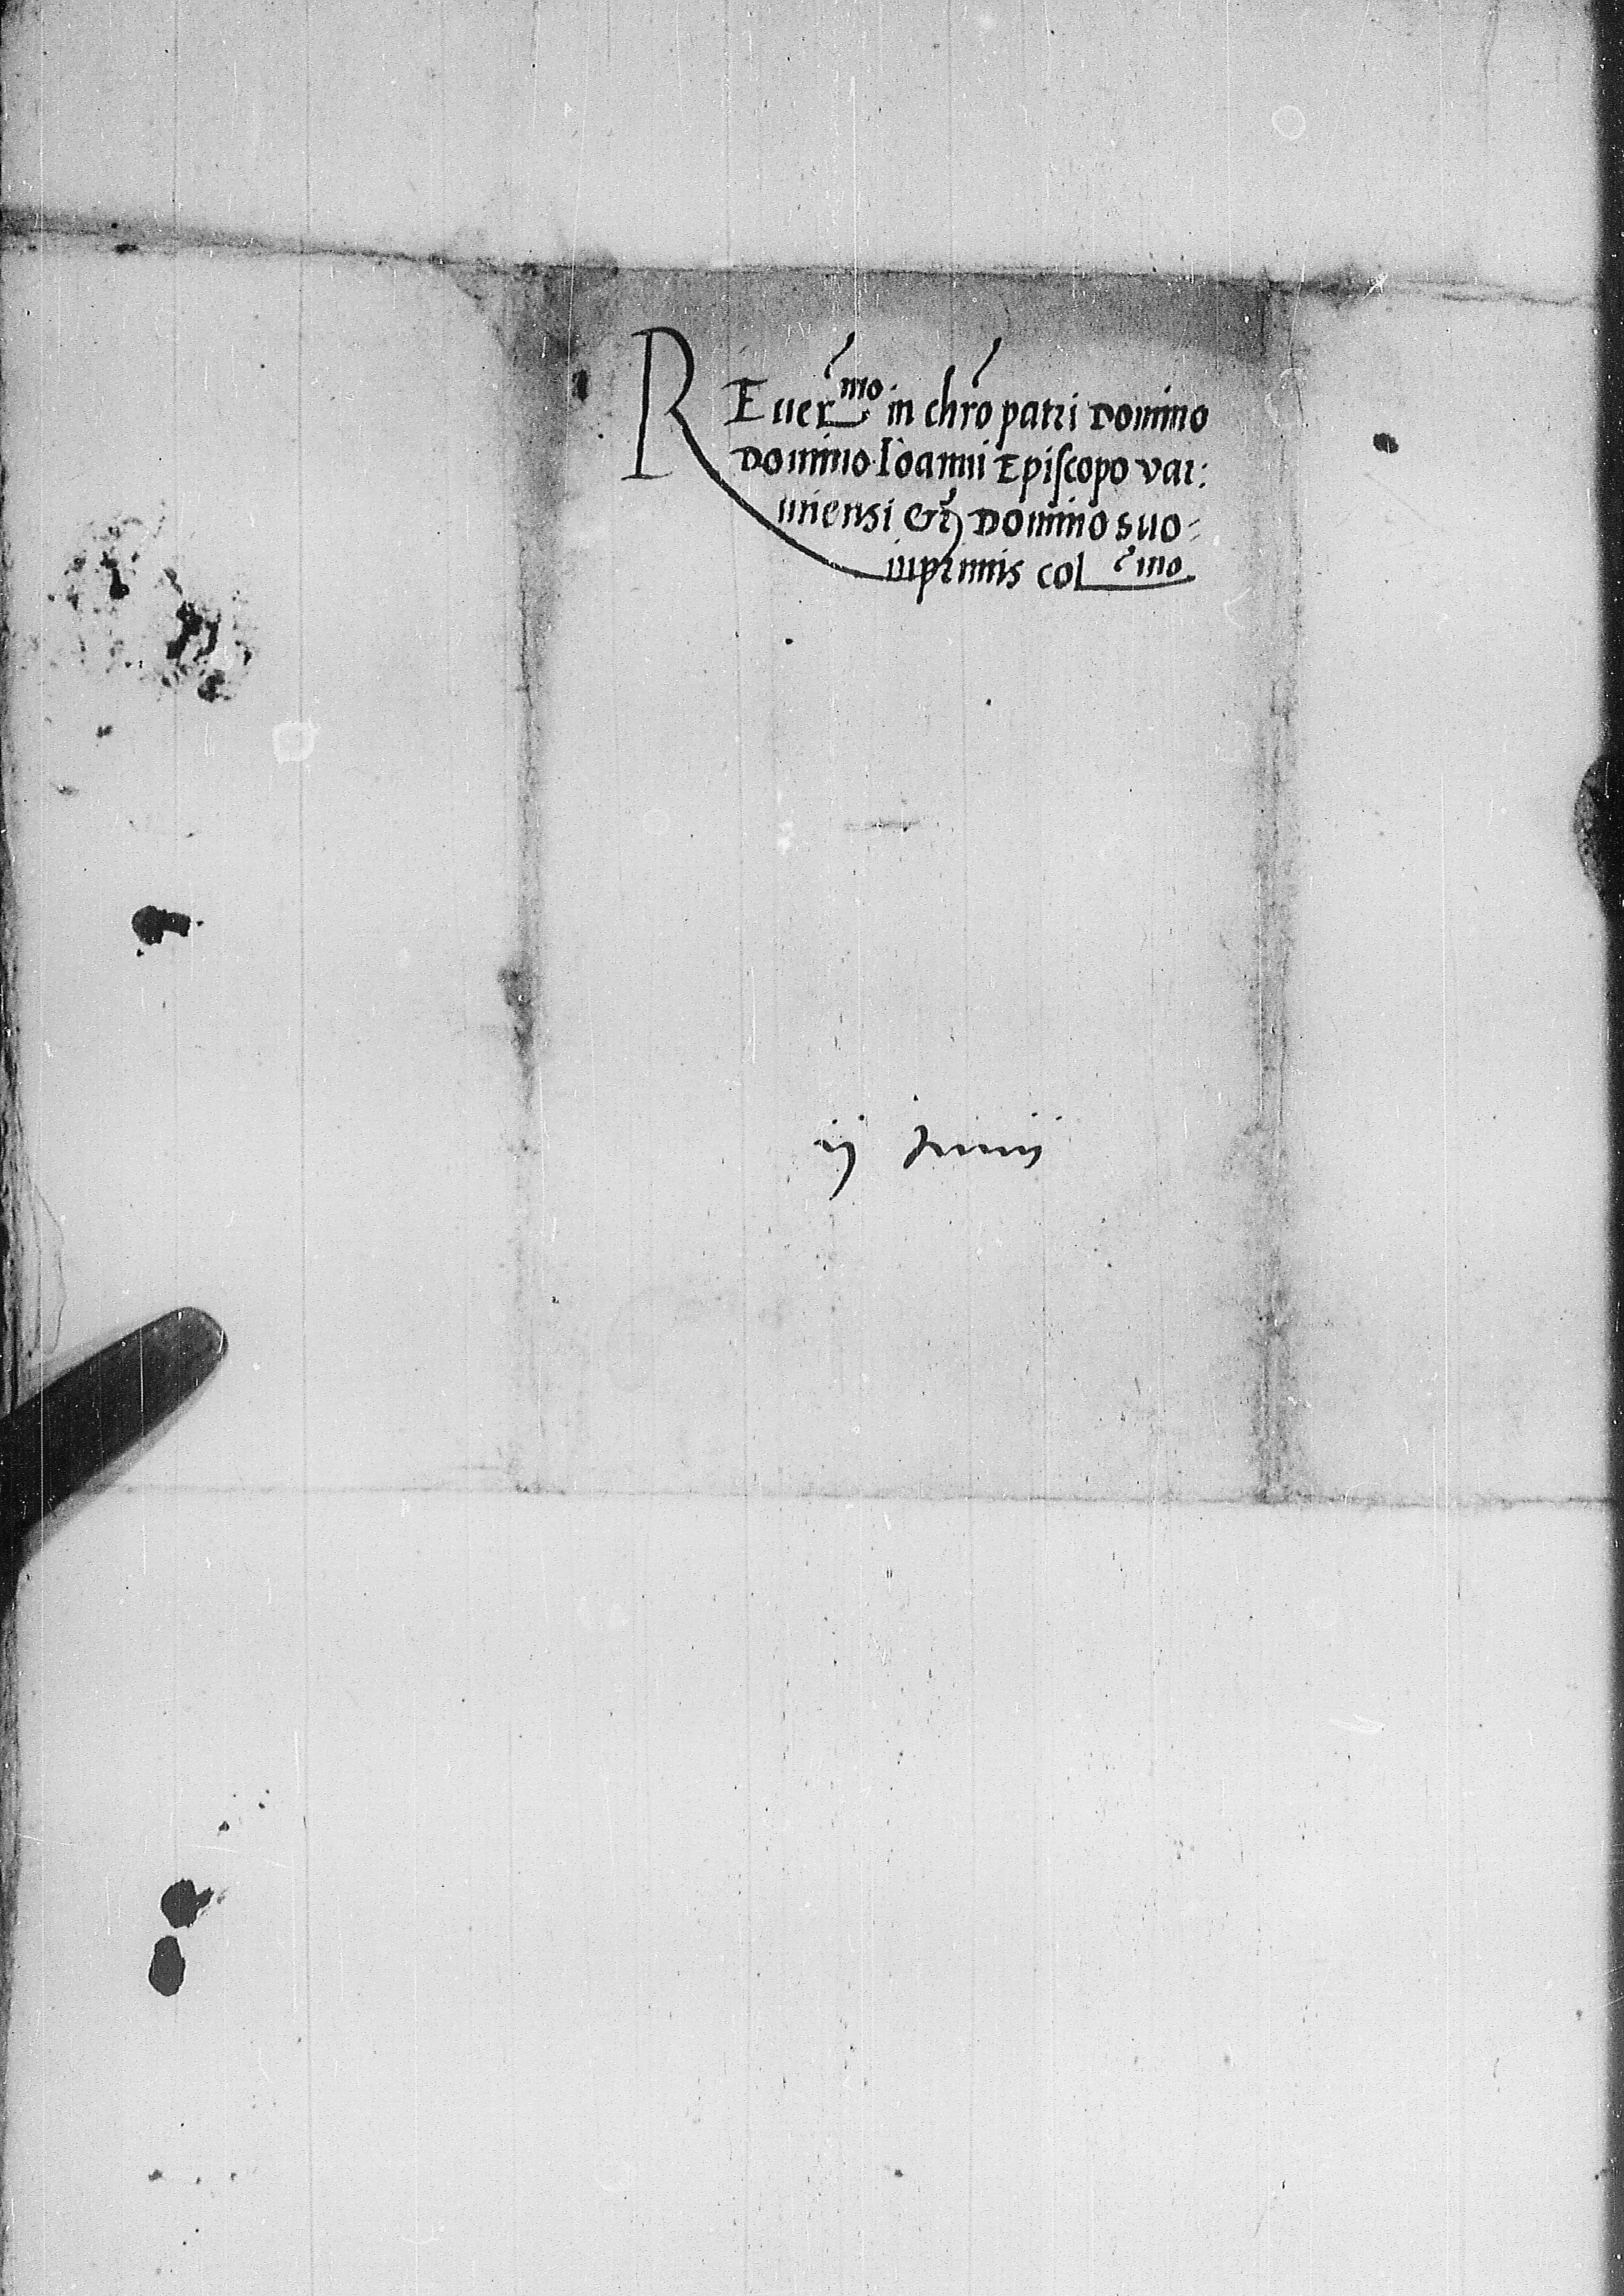 REuer^mo in chro patri Domino
Domino Ioanni Episcopo var:
miensi etc Domino suo
inprimis col^mo
ij Junij